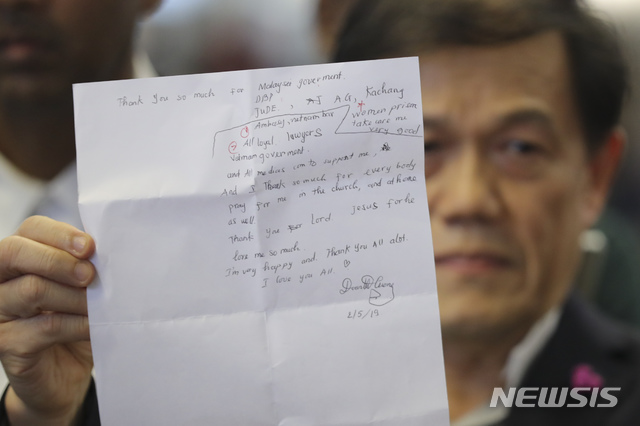 Thank you so much for Malaysian goverment.
DPP
JUDE, A.G, Kachang
women prison
take care me
very good
① Ambassy,
② All legal lawyers
Vietnam goverment.
and All medias com to support me,
And I Thank so much for every body
pray for me in the church, and athome
as well
Thank you Lord. Jesus for he
love me so much.
I'm very happy and. Thank you All alot.
I love you All.
2/5/19
NEWSIS